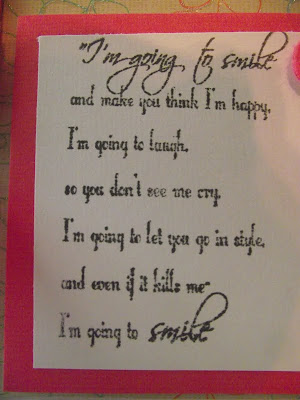 "I'm going to smile
and make you think I'm happy,
I'm going to laugh,
so you don't see me cry,
I'm going to let you go in style,
and even if it kills me-
I'm going to smile